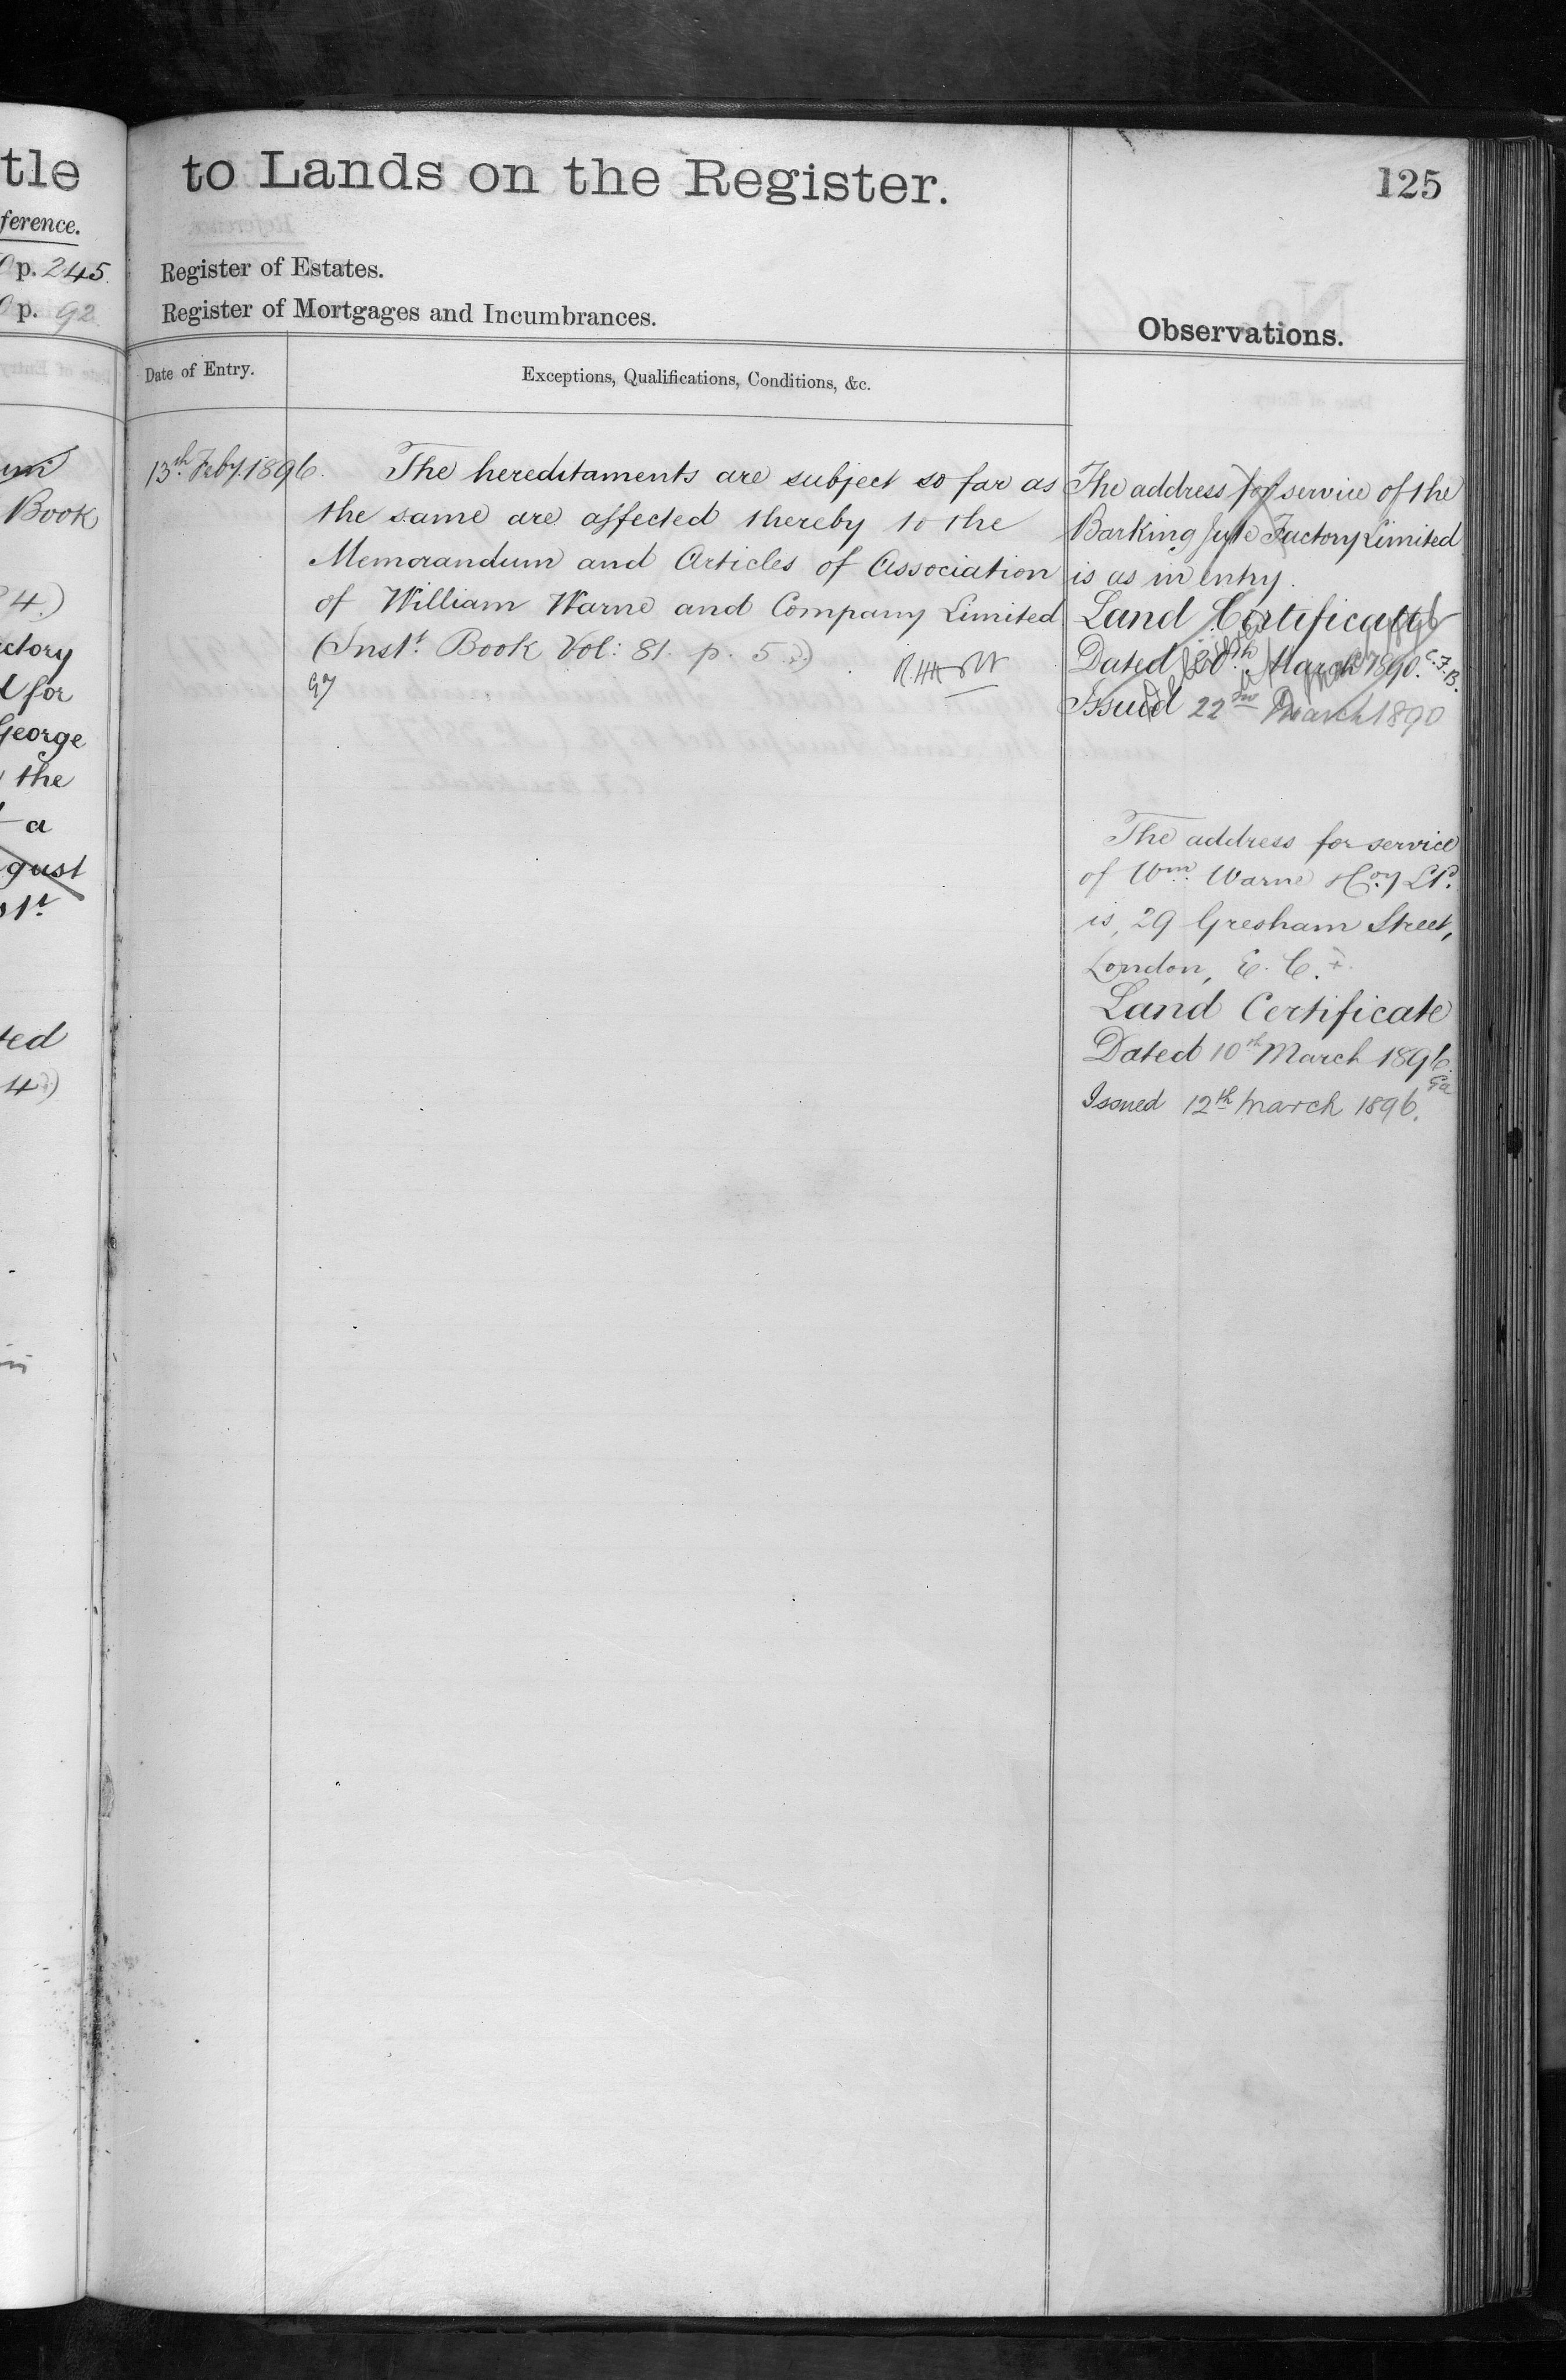 tle
ference.
p. 245.
p. 92
Book
4.)
ctory
for
George
the
a
gust
1st
ted
4.)
to Lands on the Register.
125
Register of Estates.
Register of Mortgages and Incumbrances.
Observations.
Date of Entry.
Exceptions, Qualifications, Conditions, &c.
13th Feby. 1896.
The hereditaments are subject so far as
the same are affected thereby to the
Memorandum and Articles of Association
of William Warne and Company Limited
(Inst. Book Vol: 81. p. 5.)
The address for service of the
Barking Jute Factory Limited
is as in entry.
Land Certificate
Dated 20th March 1890. C.F.B.
Issued 22nd March 1890
The address for service
of Wm. Warne & Coy Ld.
is, 29 Gresham Street,
London, E.C.
Land Certificate
Dated 10th March 1896.
Issued 12th March 1896.